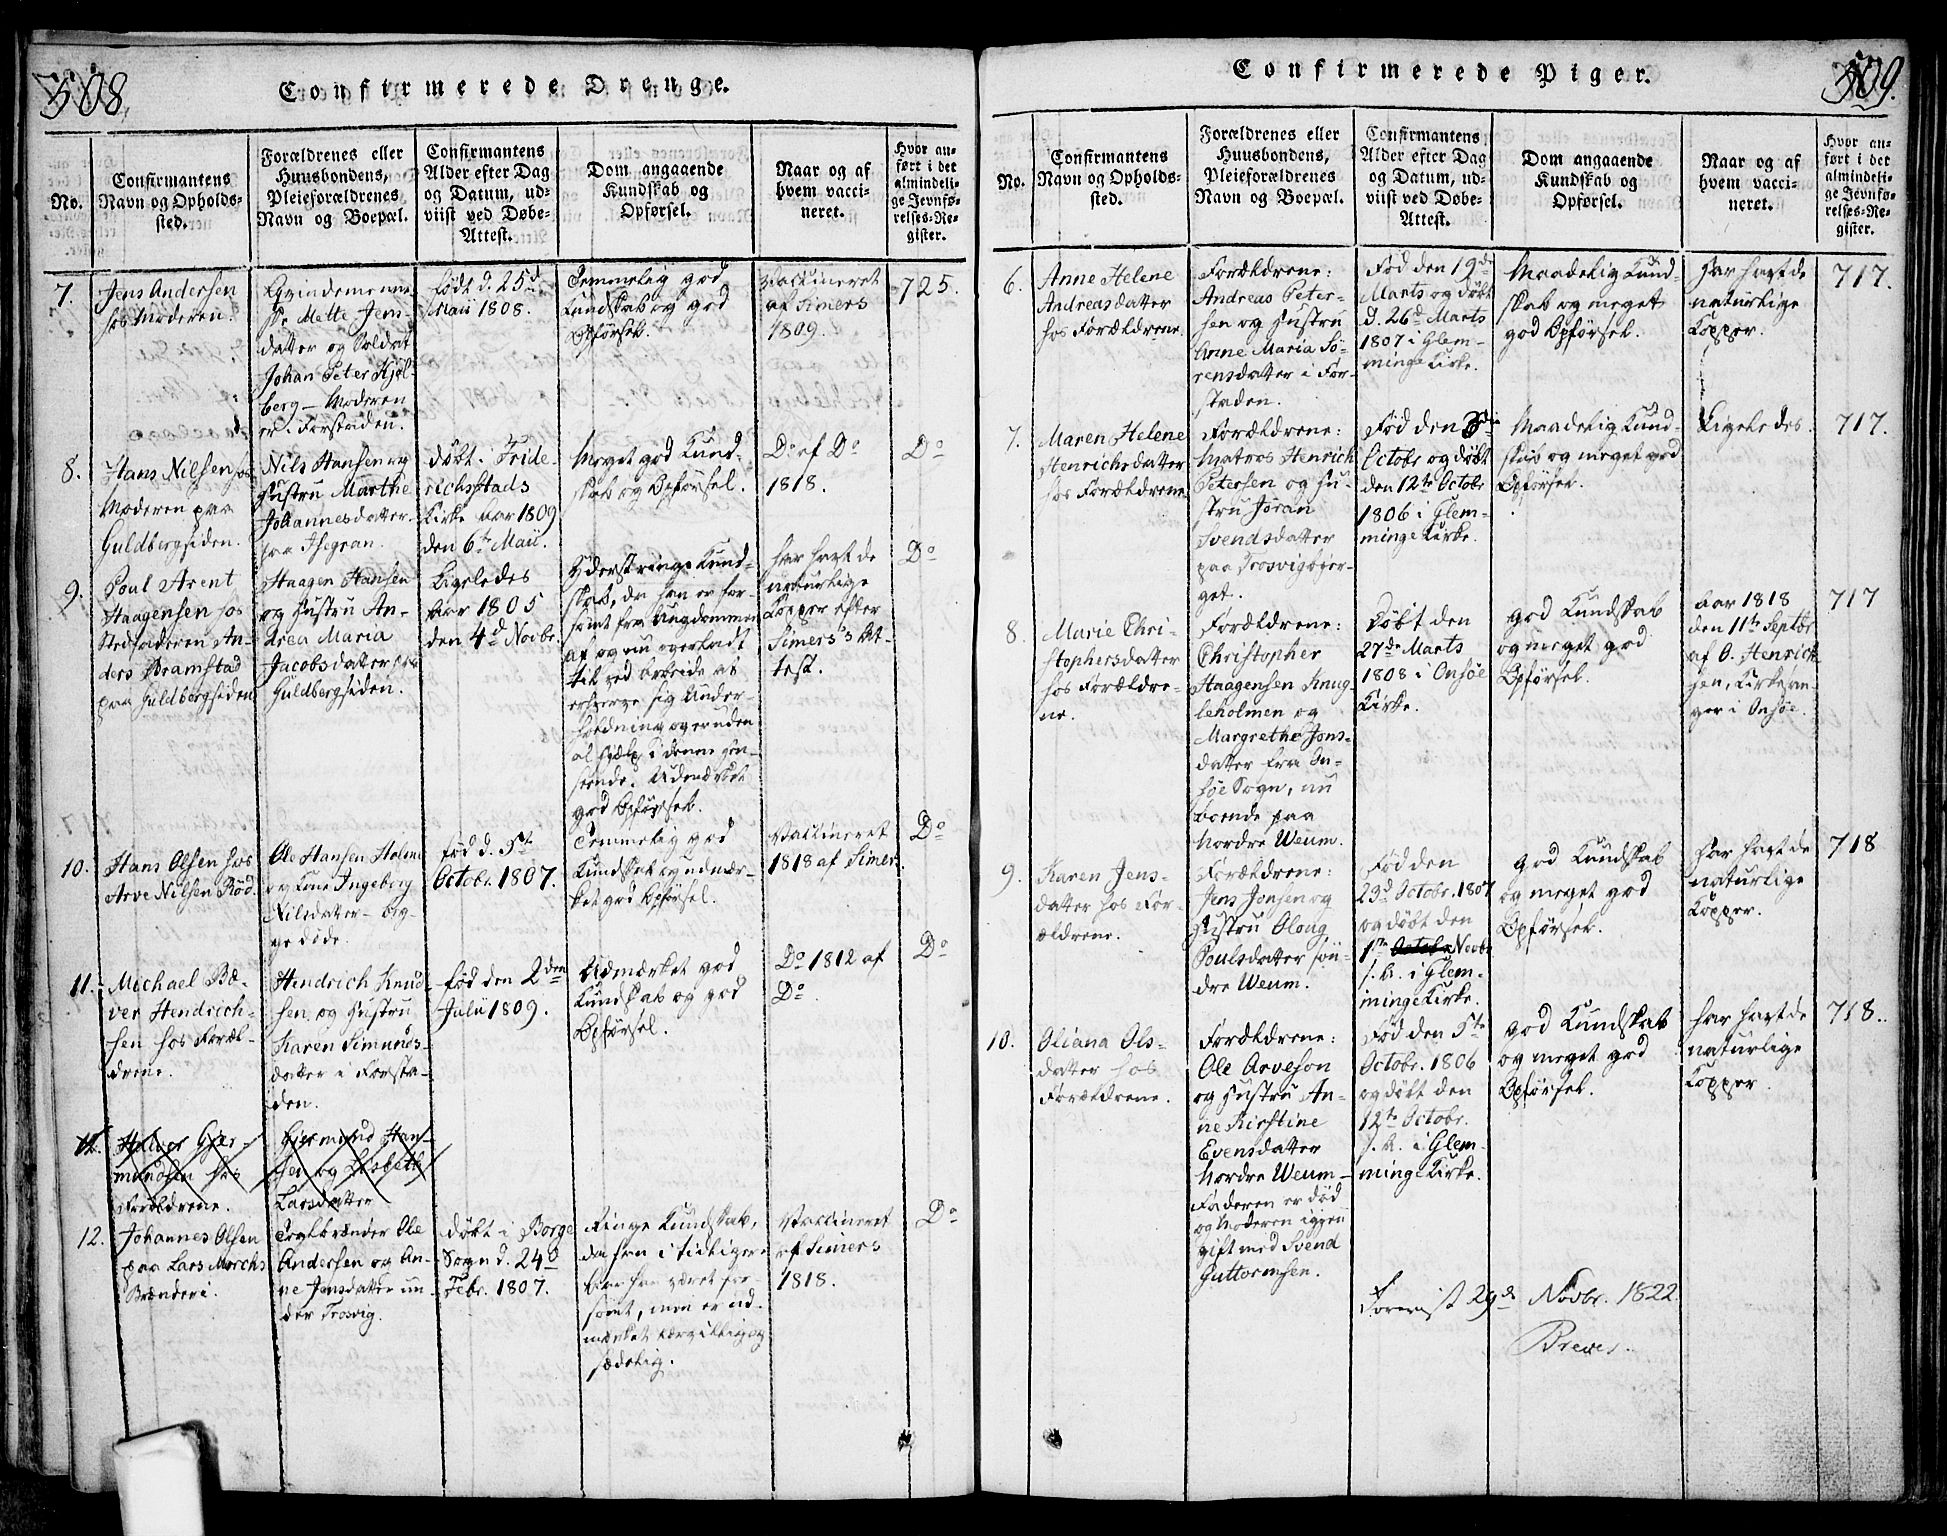 508.
Confirmerede Drenge.
No.
Confirmantens
Navn og Opholds-
sted.
Forældrenes eller
Huusbondens,
Pleieforældrenes
Navn og Boepæl.
Confirmantens
Alder efter Dag
og Datum, ud-
viist ved Døbe-
Attest.
Dom angaaende
Kundskab og
Opførsel.
Naar og af
hvem vacci-
neret.
Hvor an-
ført i det
almindeli-
ge Jevnfø-
relses-Re-
gister.
7.
Jens Andersen
hos Moderen.
Qvindemenne-
ske Mette Jens-
datter og Soldat
Johan Peter Kjøl-
berg – Moderen
er i Forstaden.
født d. 25d
Maii 1808.
Temmelig god
Kundskab og god
Opførsel.
Vaccineret
af Simers
1809.
725.
8.
Hans Nilsen hos
Moderen paa
Guldbergsiden.
Nils Hansen og
Hustru Marthe
Johannesdatter
paa Isegran.
døbt i Fride-
richsstads
Kirke Aar 1809
den 6te Maii.
Meget god Kund-
skab og Opførsel.
Do af Do
1818.
Do
9.
Poul Arent
Haagensen hos
Stedfaderen An-
ders Bramstad
paa Guldbergsiden
Haagen Hansen
og Hustru An-
drea Maria
Jacobsdatter paa
Guldbergsiden.
Ligeledes
Aar 1805
den 4d Novbr.
Yderst ringe Kund-
skab, da han er for-
sømt fra Ungdommen
af og nu overladt
til ved Arbeide at
erhverve sig Under-
holdning og er uden
al Hielp i denne Hen-
seende. Udmærket
god Opførsel.
har havt de
naturlige
Kopper efter
Simers's At-
test.
Do
10.
Hans Olsen hos
Arve Nilsen Rød.
Ole Hansen Holme
og Kone Ingeborg
Nilsdatter – beg-
ge døde.
fød d. 5te
Octobr. 1807.
Temmelig god
Kundskab og udmær-
ket god Opførsel.
Vaccineret
1818 af Simers
Do
11.
Michael Bæ-
ver Hendrich-
sen hos Foræl-
drene.
Hendrich Knud-
sen og Hustru
Karen Simunds-
datter i Forsta-
den.
fød den 2den
Julii 1809.
Udmærket god
Kundskab og god
Opførsel.
Do 1812 af
Do.
Do
12.
Halvor Gjer-
mundsen hos
Forældrene.
Giermund Han-
sen og Lisbeth
Larsdatter
12.
Johannes Olsen
paa Lars Morchs
Brænderi.
Teglbrænder Ole
Andersen og An-
ne Jensdatter un-
der Trosvig.
døbt i Borge
Sogn d. 24d
Febr. 1807.
Ringe Kundskab,
da han i tidligere
Aar har været for-
sømt, men er ud-
mærket lærvillig og
sædelig.
Vaccineret
af Simers
1818.
Do
509.
Confirmerede Piger.
No.
Confirmantens
Navn og Opholds-
sted.
Forældrenes eller
Huusbondens,
Pleieforældrenes
Navn og Boepæl.
Confirmantens
Alder efter Dag
og Datum, ud-
viist ved Døbe-
Attest.
Dom angaaende
Kundskab og
Opførsel.
Naar og af
hvem vacci-
neret.
Hvor an-
ført i det
almindeli-
ge Jevnfø-
relses-Re-
gister.
6.
Anne Helene
Andreasdatter
hos Forældrene
Forældrene:
Andreas Peter-
sen og Hustru
Anne Maria Sö-
rensdatter i For-
staden.
Fød den 19de
Marts og døbt
d. 26d Marts
1807 i Glem-
minge Kirke.
Maadelig Kund-
skab og meget
god Opførsel.
har havt de
naturlige
Kopper.
717.
7.
Maren Helene
Henrichsdatter
hos Forældrene
Forældrene:
Matros Henrich
Petersen og Hu-
stru Jöran
Svendsdatter
paa Trosvigbjer-
get.
Fød den 3die
Octobr og døbt
den 12te Octobr
1806 i Glem-
minge Kirke.
Maadelig Kund-
skab og meget god
Opførsel.
Ligeledes.
717.
8.
Marie Chri-
stophersdatter
hos Forældre-
ne.
Forældrene:
Christopher
Haagensen Knug-
leholmen og
Margrethe Jons-
datter fra On-
søe Sogn, nu
boende paa
Nordre Weum.
Døbt den
27de Marts
1808 i Onsøe
Kirke.
god Kundskab
og meget god
Opførsel.
Aar 1818
den 11te Septbr
af O. Henrich-
sen, Kirkesan-
ger i Onsøe.
717
9.
Karen Jens-
datter hos For-
ældrene.
Forældrene:
Jens Jonsen og
Hustru Oloug
Poulsdatter søn-
dre Weum.
Fød den
23d Octobr. 1807
og døbt den
1ste Octobr Novbr
s. A. i Glem-
minge Kirke.
god Kundskab
og meget god
Opførsel.
har havt de
naturlige
Kopper.
718
10.
Oliana Ols-
datter hos
Forældrene.
Forældrene:
Ole Arveson
og Hustru An-
ne Kirstine
Evensdatter
Nordre Weum –
Faderen er død
og Moderen igjen
gift med Svend
Guttormsen.
Fød den 5te
Octobr. 1806
og døbt den
12te Octobr.
s. A. i Glem-
minge Kirke.
god Kundskab
og meget god
Opførsel.
har havt de
naturlige
Kopper.
718.
Foreviist 29de Novbr. 1822.